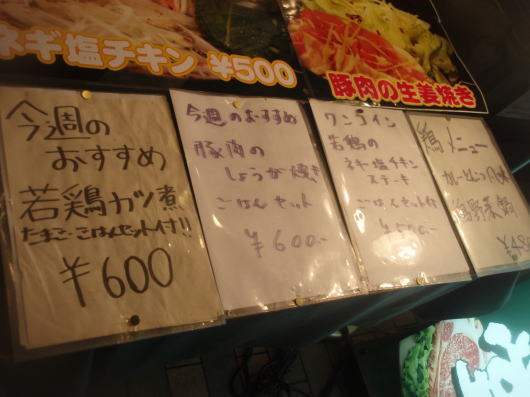 ネギ塩チキン ¥500
豚肉の生姜焼き
今週の
おすすめ
若鶏カツ煮
たまご・ごはんセット付!!
¥600
今週のおすすめ
豚肉の
しょうが焼き
ごはんセット
¥600-
ワンコイン
若鶏の
ネギ塩チキン
ステーキ
ごはんセット付
¥500-
鶏メニュー
鶏野菜鍋